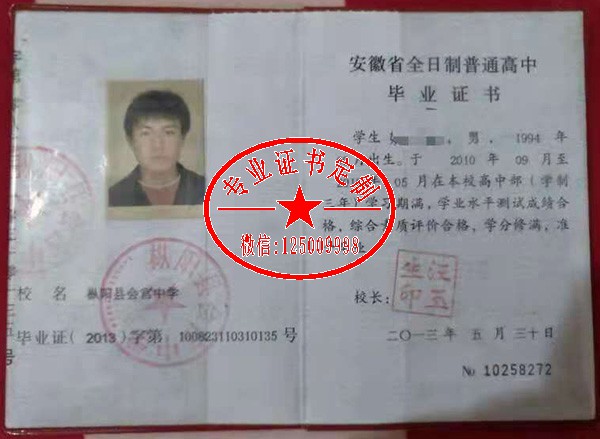 安徽省全日制普通高中
毕业证书
学生 ，男， 1994 年
出生。于 2010 年 09 月至
05 月在本校高中部（学制
三年）学习期满，学业水平测试成绩合
格，综合素质评价合格，学分修满，准
校长：
二〇一三年 五 月 三十日
№ 10258272
校 名 枞阳县会宫中学
毕业证( 2013 )字第 100823110310135 号
专业证书定制
微信:125009998
枞阳县会宫